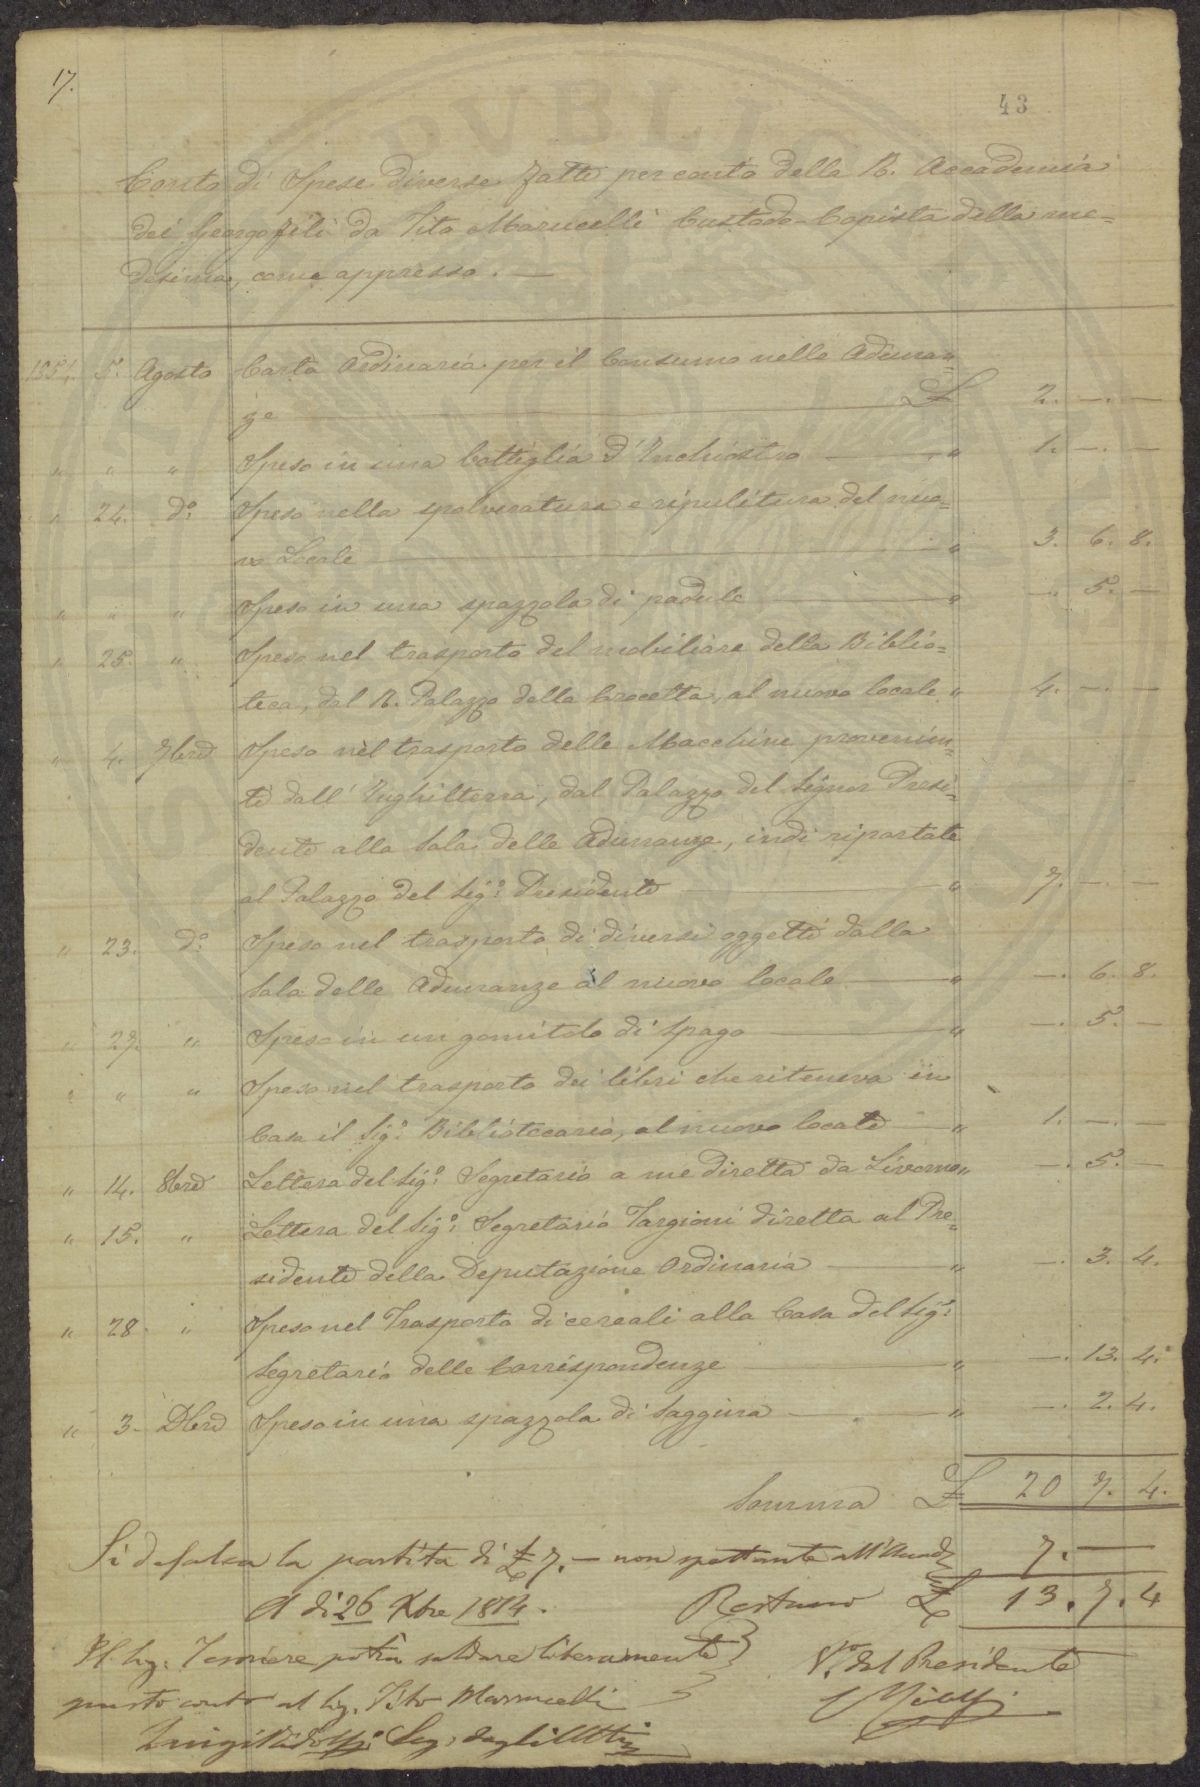 17.
43
Conto di Spese diverse fatte per conto della R. Accademia
dei Georgofili da Vito Marucelli Custode-Copista della me=
desima, come appresso. —
5. Agosto Carta Ordinaria per il Consumo nelle Aduna=
ze — £ 2. —. —
" " " Speso in una bottiglia d'Inchiostro — " 1. —. —
" 24. do: Speso nella spolveratura e ripulitura del nuo=
vo Locale — " 3. 6. 8.
" " " Speso in una spazzola di padule — " —. 5. —
" 25. " Speso nel trasporto del mobiliare della Biblio=
teca, dal R. Palazzo della Crocetta, al nuovo locale " 4. —. —
" 4. 7bre Speso nel trasporto delle Macchine provenien=
ti dall'Inghilterra, dal Palazzo del Signor Presi=
dente alla Sala delle Adunanze, indi riportate
al Palazzo del Sigr: Presidente — " 7. —. —
" 23. do: Speso nel trasporto di diversi oggetti dalla
Sala delle Adunanze al nuovo locale — " —. 6. 8.
" 27. " Speso in un gomitolo di Spago — " —. 5. —
" " " Speso nel trasporto dei libri che riteneva in
Casa il Sigr: Bibliotecario, al nuovo locale — " 1. —. —
" 14. 8bre Lettera del Sigr: Segretario a me diretta da Livorno " —. 5. —
" 15. " Lettera del Sigr: Segretario Targioni diretta al Pre=
sidente della Deputazione Ordinaria — " —. 3. 4.
" 28. " Speso nel Trasporto di cereali alla Casa del Sigr:
Segretario delle Corrispondenze — " —. 13. 4.
" 3. Dbre Speso in una spazzola di Saggina — " —. 2. 4.
Somma £ 20 7. 4.
Si defalca la partita di £ 7. — non spettante all'Accad. 7. —
A di 26 Xbre Restano £ 13. 7. 4
Il Sig. Tesoriere potrà saldare liberamente
questo conto al Sig. Vito Marucelli
Luigi Ridolfi Seg. degli Atti
Vo. del Presidente
Ridolfi